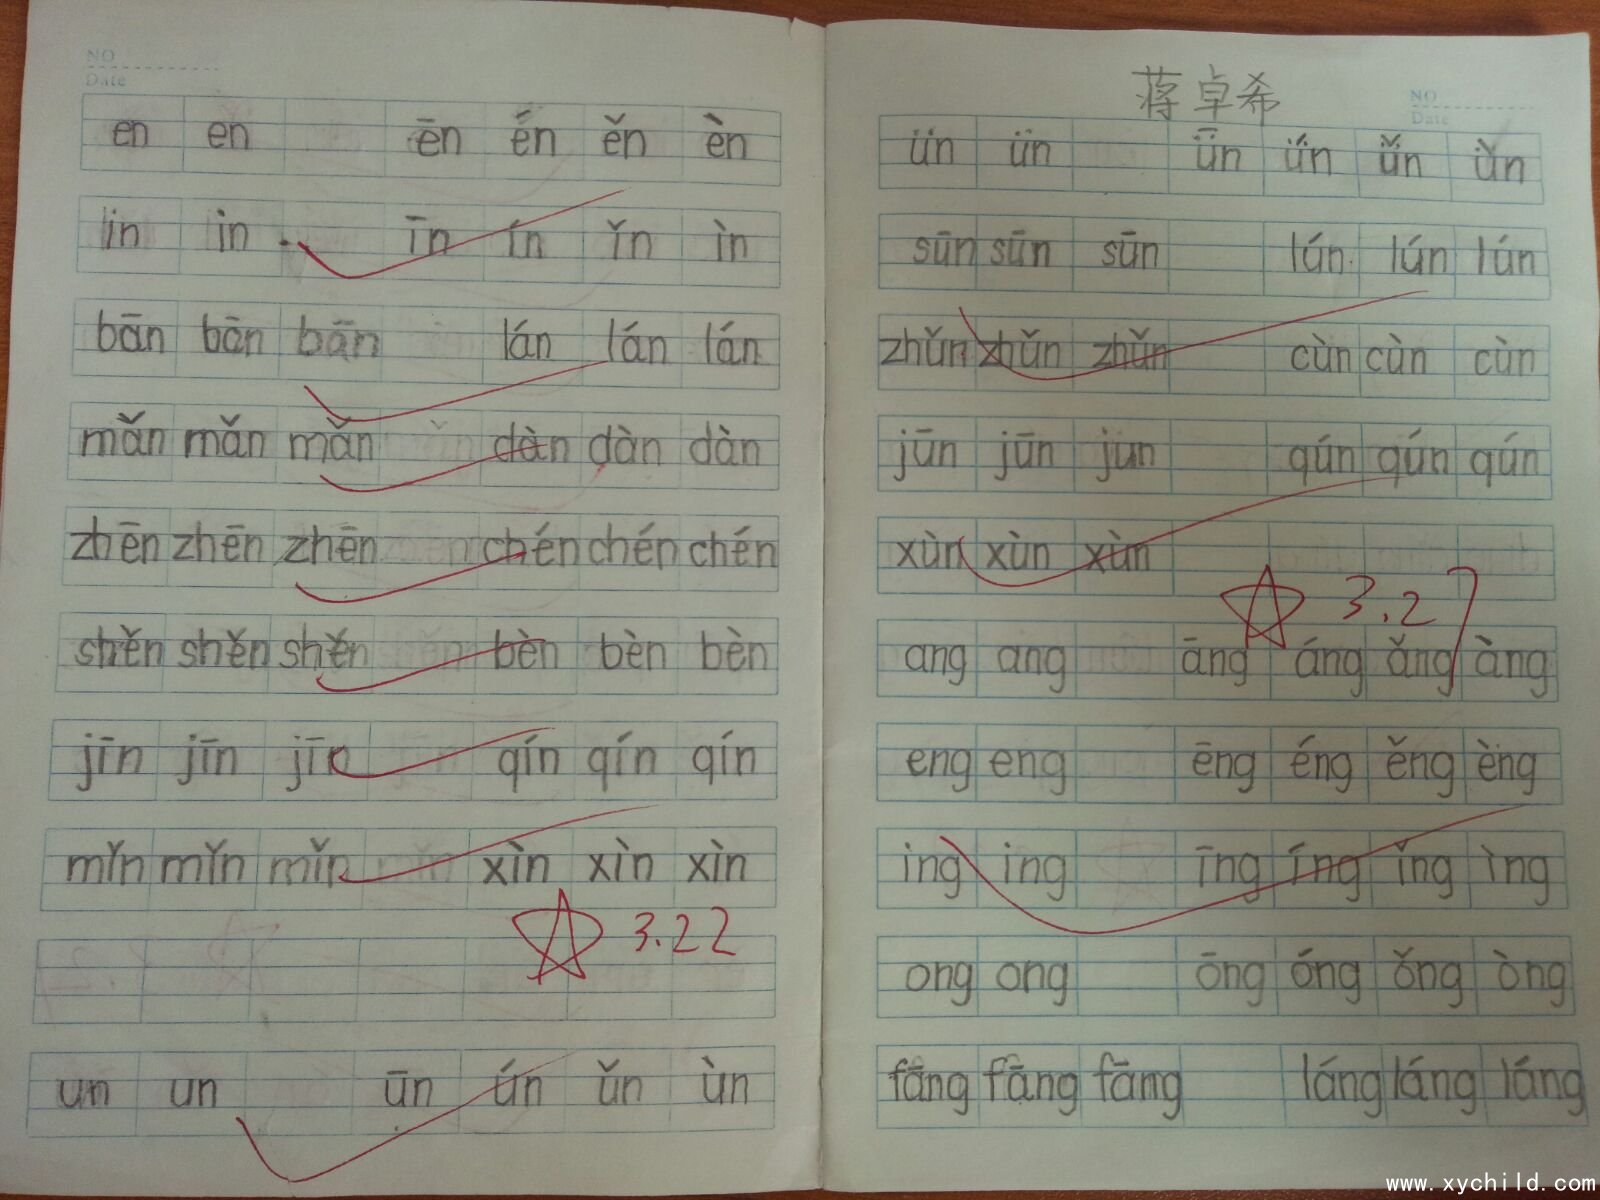 NO
Date
en en ēn én ěn èn
in in īn ín ǐn ìn
bān bān bān lán lán lán
mǎn mǎn mǎn dàn dàn dàn
zhēn zhēn zhēn chén chén chén
shěn shěn shěn bèn bèn bèn
jīn jīn jīn qín qín qín
mǐn mǐn mǐn xìn xìn xìn
3.22
un un ūn ún ǔn ùn
蒋卓希
NO
Date
ün ün ǖn ǘn ǚn ǜn
sūn sūn sūn lún lún lún
zhǔn zhǔn zhǔn cùn cùn cùn
jūn jūn jūn qún qún qún
xùn xùn xùn
3.27
ang ang āng áng ǎng àng
eng eng ēng éng ěng èng
ing ing īng íng ǐng ìng
ong ong ōng óng ǒng òng
fāng fāng fāng láng láng láng
www.xychild.com